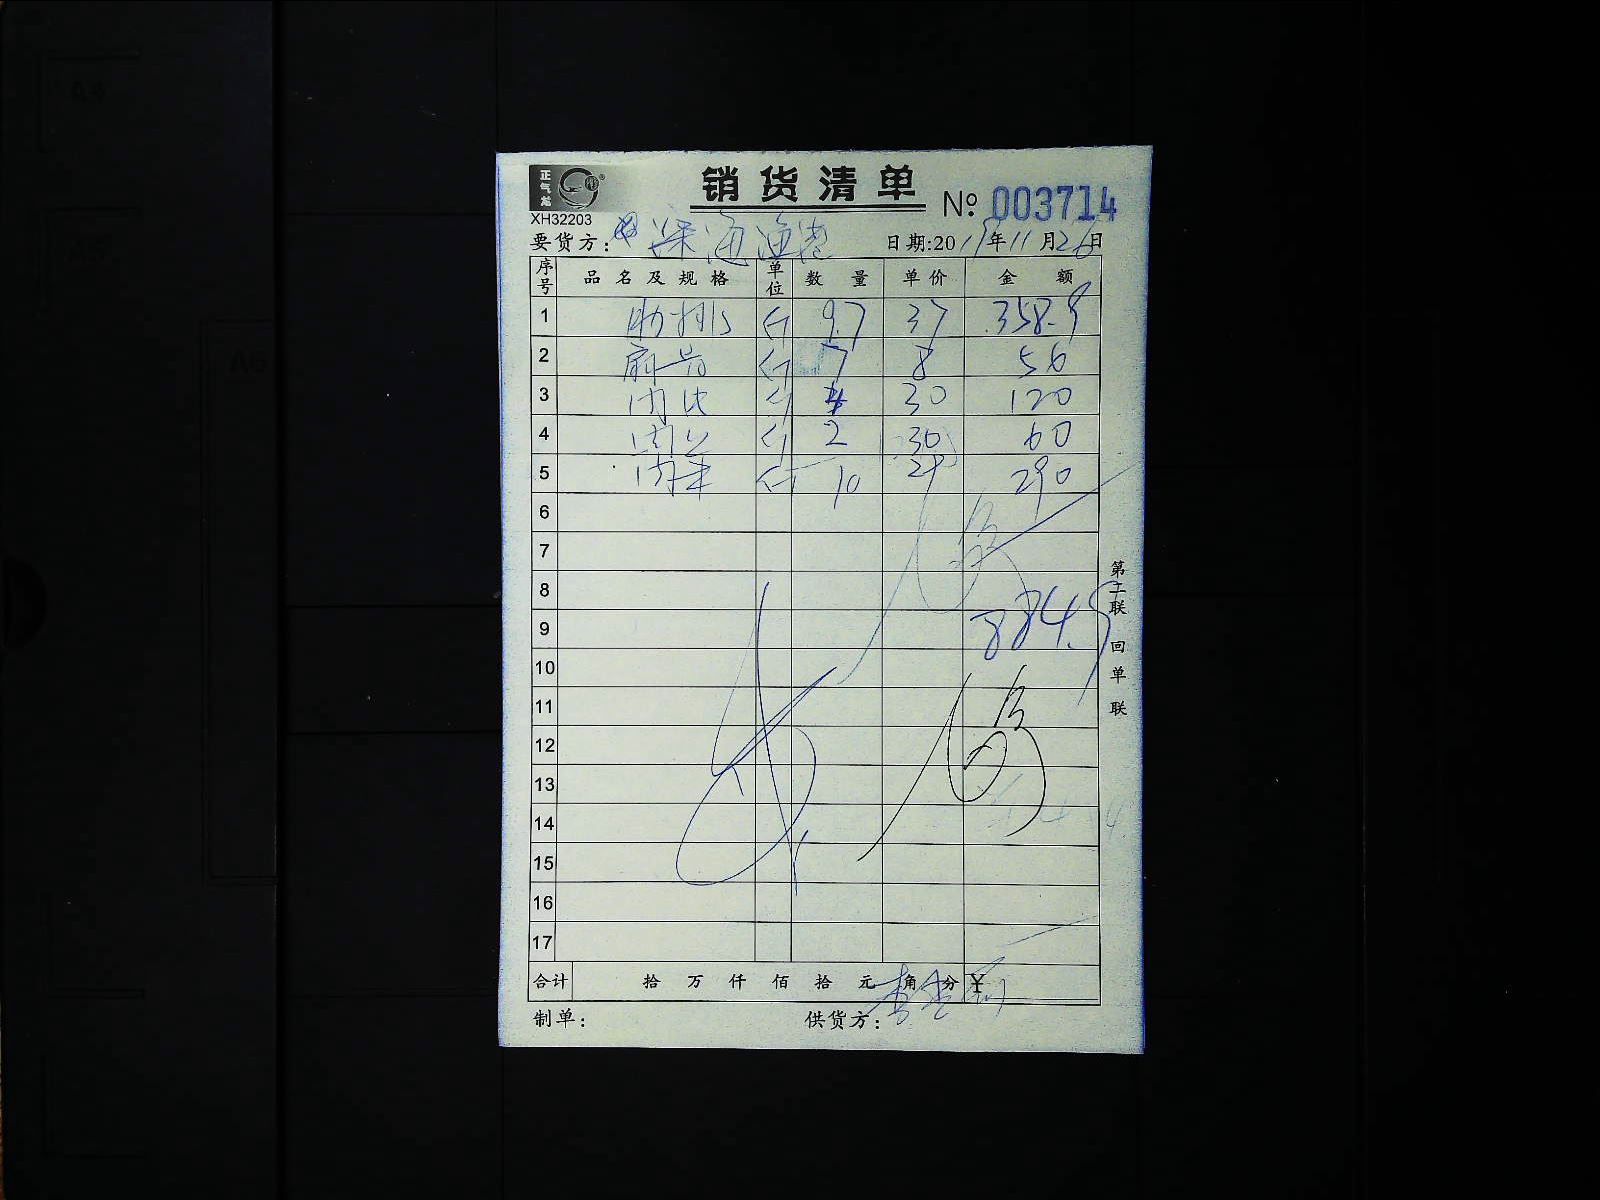 正气龙
销货清单
XH32203
№ 003714
要货方: 深海渔港 日期:2019年11月26日
序号 品名及规格 单位 数量 单价 金额
1 肋排 斤 9.7 37 358.9
2 扇骨 斤 7 8 56
3 肉 斤 4 30 120
4 肉 斤 2 30 60
5 肉 斤 10 29 290
6
7
8
9 884.9
10
11
12
13
14
15
16
17
第二联 回单联
合计 拾 万 仟 佰 拾 元 角 分 ¥
制单: 供货方: